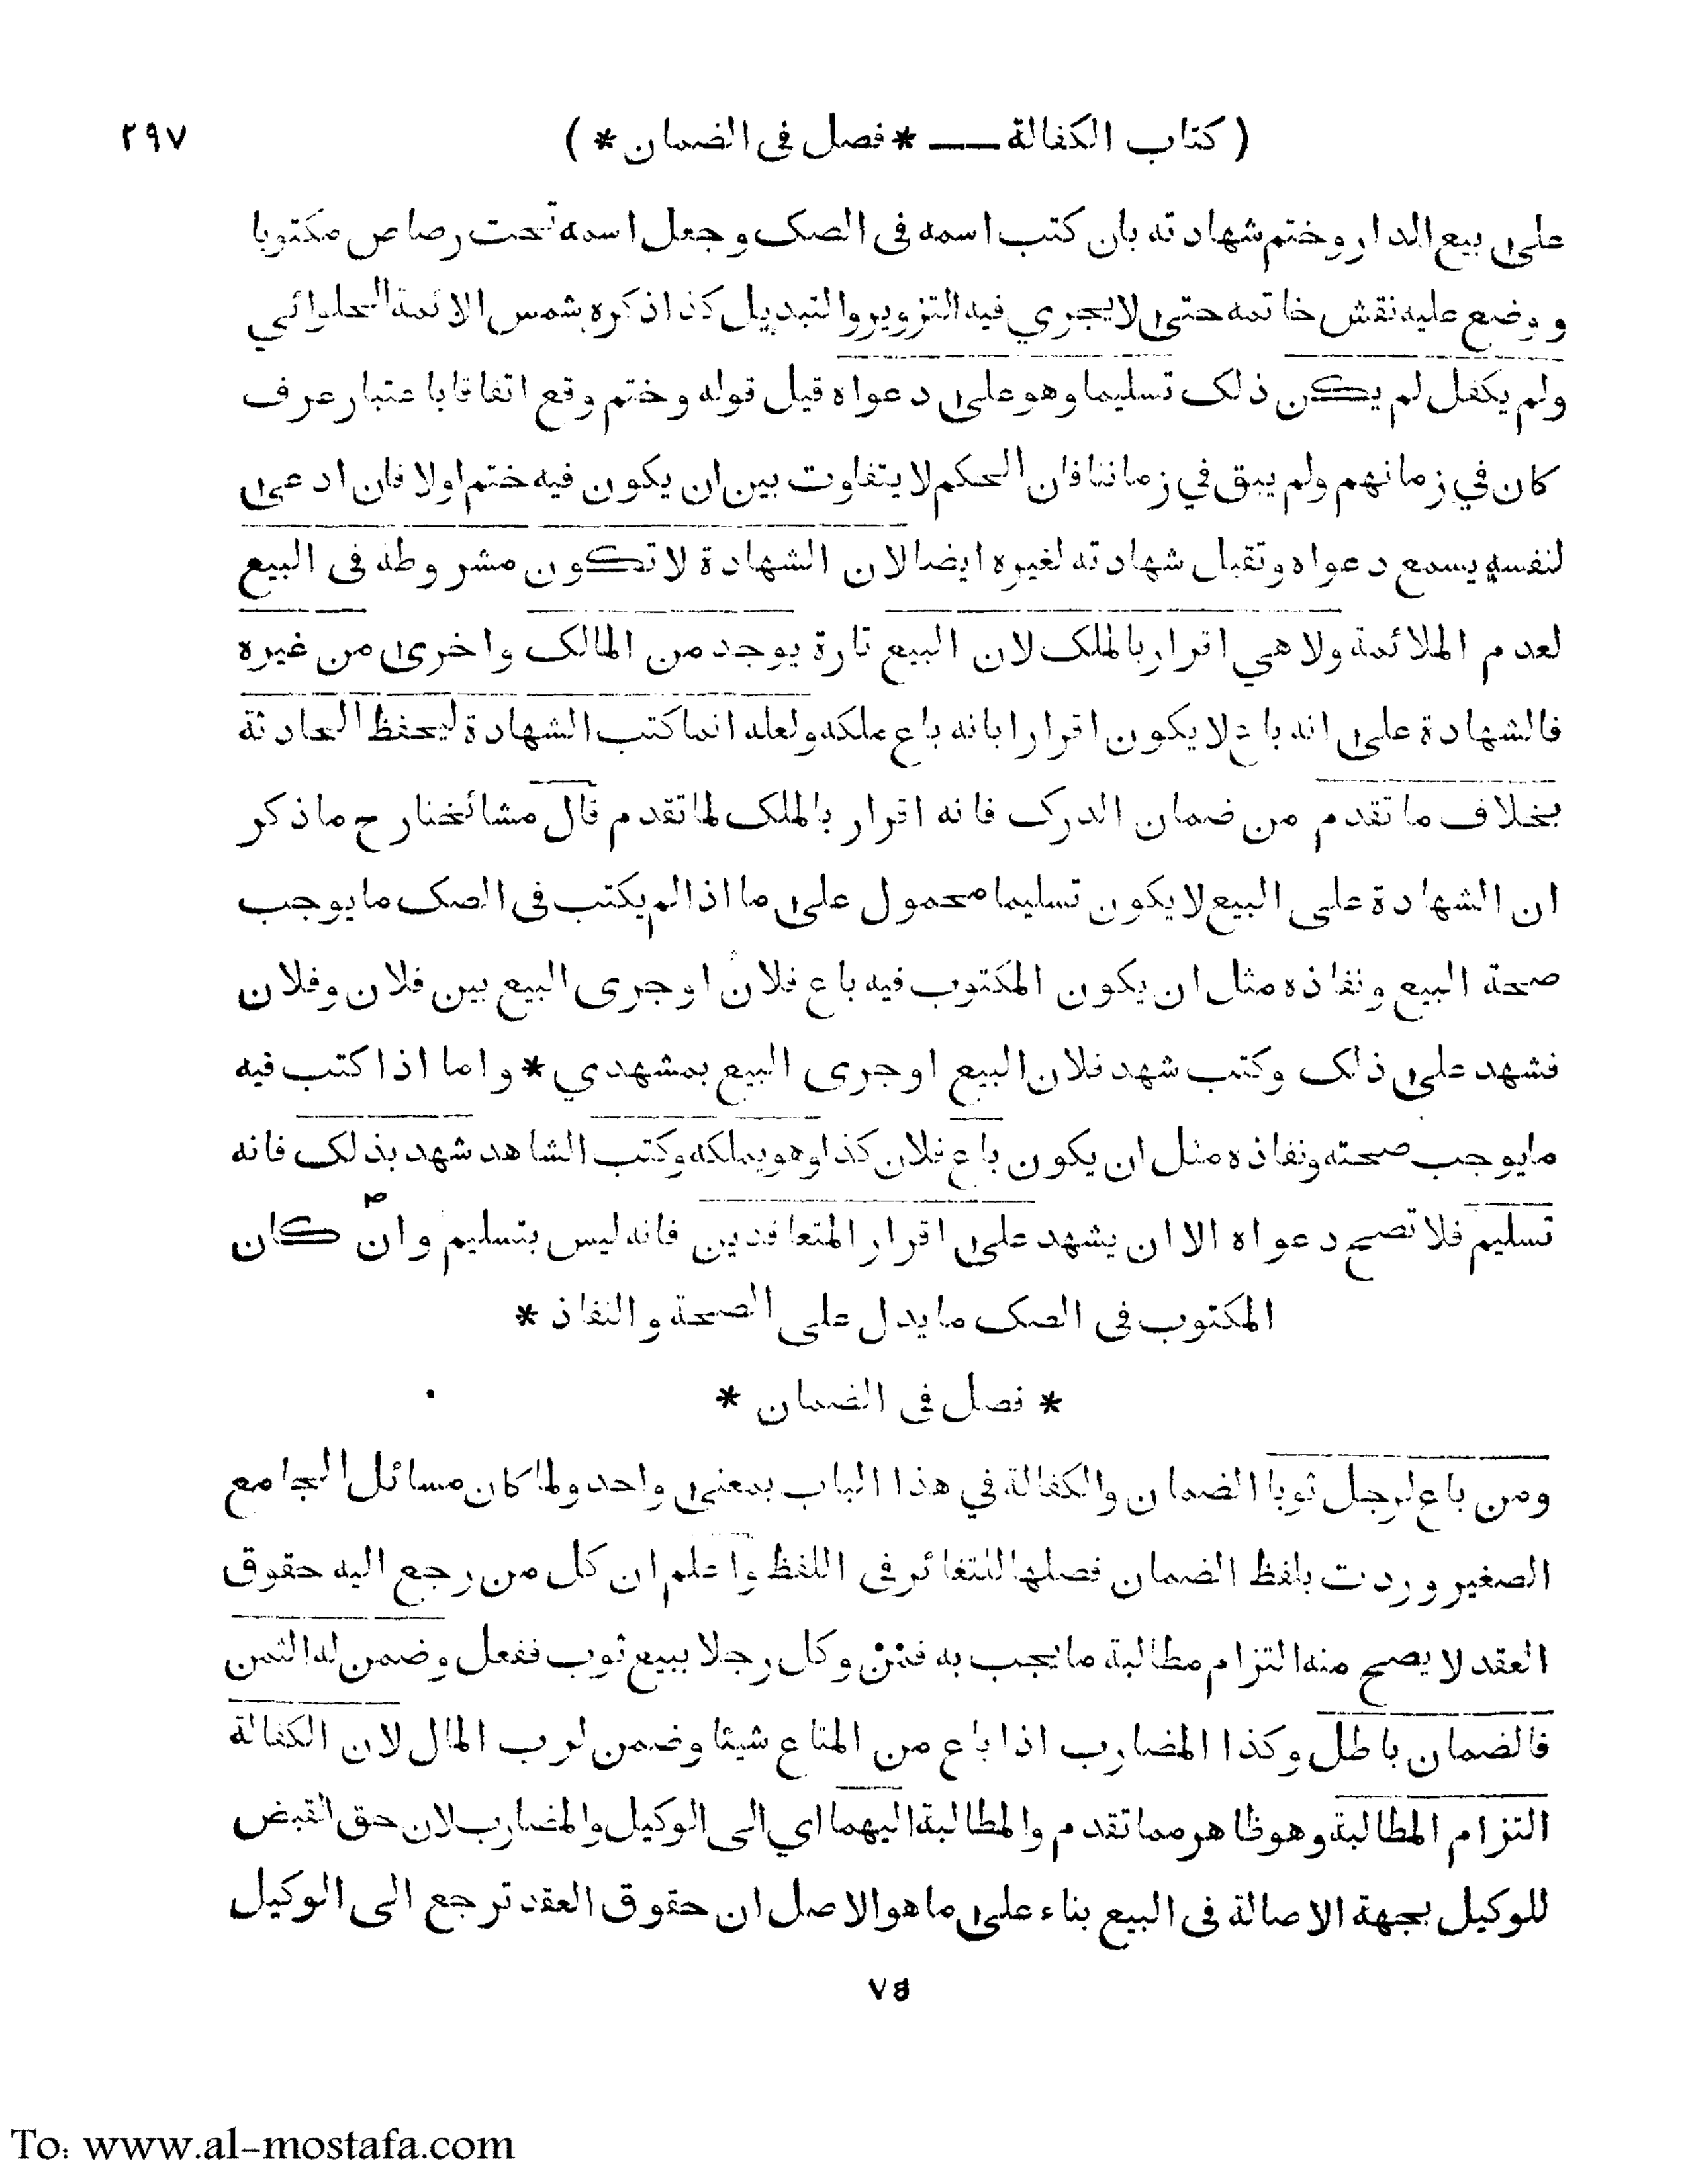 ( كتاب الكفالة — * فصل فى الضمان * ) ٢٩٧
على بيع الدار وختم شهادته بان كتب اسمه فى الصك وجعل اسمه تحت رصاص مكتوبا
و وضع عليه نقش خاتمه حتى لا يجري فيه التزوير والتبديل كذا ذكره شمس الائمة الحلوائي
ولم يكفل لم يكن ذلك تسليما وهو على دعواه قيل قوله وختم وقع اتفاقا باعتبار عرف
كان في زمانهم ولم يبق في زماننا فان الحكم لا يتفاوت بين ان يكون فيه ختم اولا فان ادعى
لنفسه يسمع دعواه وتقبل شهادته لغيره ايضا لان الشهادة لا تكون مشروطة فى البيع
لعدم الملائمة ولا هي اقرار بالملك لان البيع تارة يوجد من المالك واخرى من غيره
فالشهادة على انه باع لا يكون اقرارا بانه باع ملكه ولعله انما كتب الشهادة ليحفظ الحادثة
بخلاف ما تقدم من ضمان الدرك فانه اقرار بالملك لما تقدم قال مشائخنا رح ما ذكر
ان الشهادة على البيع لا يكون تسليما محمول على ما اذا لم يكتب فى الصك ما يوجب
صحة البيع ونفاذه مثل ان يكون المكتوب فيه باع فلان او جرى البيع بين فلان وفلان
فشهد على ذلك وكتب شهد فلان البيع او جرى البيع بمشهدي * واما اذا كتب فيه
ما يوجب صحته ونفاذه مثل ان يكون باع فلان كذا وهو يملكه وكتب الشاهد شهد بذلك فانه
تسليم فلا تصح دعواه الا ان يشهد على اقرار المتعاقدين فانه ليس بتسليم وان كان
المكتوب فى الصك ما يدل على الصحة والنفاذ *
* فصل فى الضمان *
ومن باع لرجل ثوبا الضمان والكفالة في هذا الباب بمعنى واحد ولما كان مسائل الجامع
الصغير وردت بلفظ الضمان فصلها لتغائر فى اللفظ واعلم ان كل من رجع اليه حقوق
العقد لا يصح منه التزام مطالبة ما يجب به فمن وكل رجلا ببيع ثوب ففعل وضمن له الثمن
فالضمان باطل وكذا المضارب اذا باع من المتاع شيئا وضمن لرب المال لان الكفالة
التزام المطالبة وهو ظاهر مما تقدم والمطالبة اليهما اي الى الوكيل والمضارب لان حق القبض
للوكيل بجهة الاصالة فى البيع بناء على ما هو الاصل ان حقوق العقد ترجع الى الوكيل
To: www.al-mostafa.com